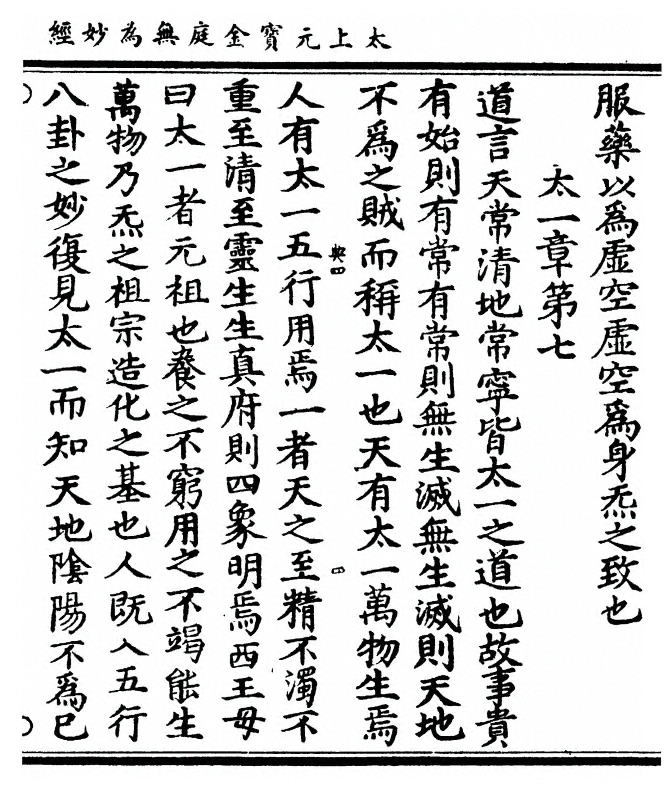 太上元寶金庭無為妙經
服藥以爲虛空虛空爲身炁之致也
太一章第七
道言天常清地常寧皆太一之道也故事貴
有始則有常有常則無生滅無生滅則天地
不爲之賊而稱太一也天有太一萬物生焉
人有太一五行用焉一者天之至精不濁不
重至清至靈生生真府則四象明焉西王母
曰太一者元祖也養之不窮用之不竭能生
萬物乃炁之祖宗造化之基也人既入五行
八卦之妙復見太一而知天地陰陽不爲已